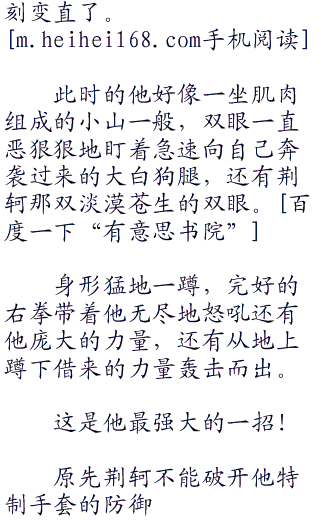 刻变直了。
[m.heihei168.com手机阅读]
此时的他好像一坐肌肉
组成的小山一般，双眼一直
恶狠狠地盯着急速向自己奔
袭过来的大白狗腿，还有荆
轲那双淡漠苍生的双眼。[百
度一下“有意思书院”]
身形猛地一蹲，完好的
右拳带着他无尽地怒吼还有
他庞大的力量，还有从地上
蹲下借来的力量轰击而出。
这是他最强大的一招！
原先荆轲不能破开他特
制手套的防御